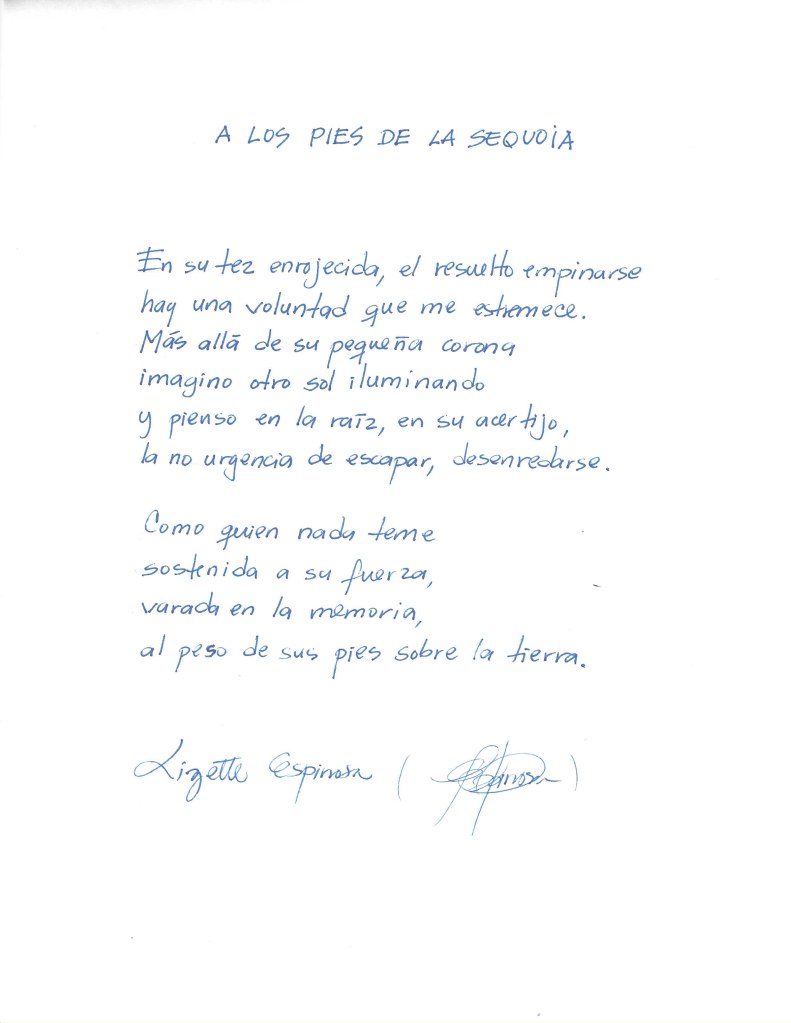 A LOS PIES DE LA SEQUOIA
En su tez enrojecida, el resuelto empinarse
hay una voluntad que me estremece.
Más allá de su pequeña corona
imagino otro sol iluminando
y pienso en la raíz, en su acertijo,
la no urgencia de escapar, desenredarse.
Como quien nada teme
sostenida a su fuerza,
varada en la memoria,
al peso de sus pies sobre la tierra.
Lizette Espinosa (